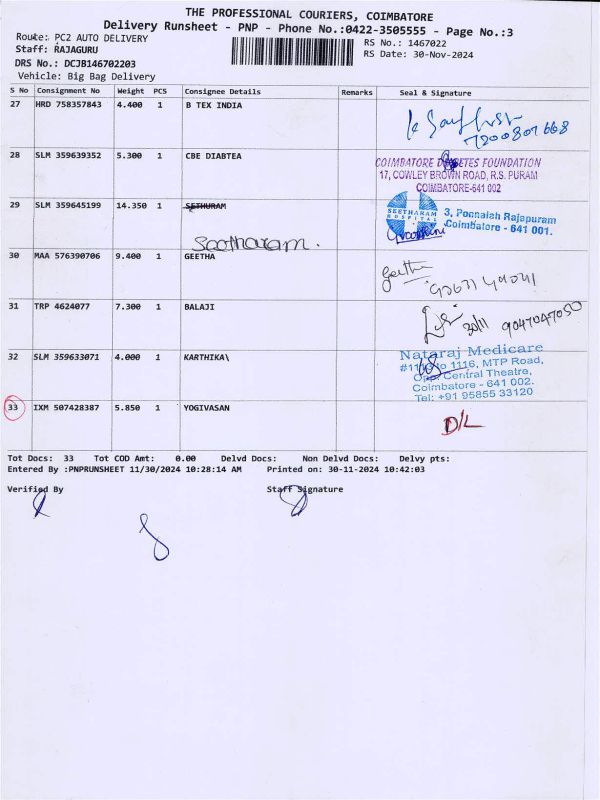 THE PROFESSIONAL COURIERS, COIMBATORE
Delivery Runsheet - PNP - Phone No.:0422-3505555 - Page No.:3
Route: PC2 AUTO DELIVERY
RS No.: 1467022
Staff: RAJAGURU
RS Date: 30-Nov-2024
DRS No.: DCJB146702203
Vehicle: Big Bag Delivery
S No Consignment No Weight PCS Consignee Details Remarks Seal & Signature
27 HRD 758357843 4.400 1 B TEX INDIA
7200801668
28 SLM 359639352 5.300 1 CBE DIABTEA
COIMBATORE DIABETES FOUNDATION
17, COWLEY BROWN ROAD, R.S. PURAM
COIMBATORE-641 002
29 SLM 359645199 14.350 1 SETHURAM
Seetharam.
SEETHARAM
HOSPITAL
3, Ponnaiah Rajapuram
Coimbatore - 641 001.
30 MAA 576390706 9.400 1 GEETHA
geetha
31 TRP 4624077 7.300 1 BALAJI
30/11 9047047050
32 SLM 359633071 4.000 1 KARTHIKA\
Nataraj Medicare
to 1116, MTP Road,
Opp. Central Theatre,
Coimbatore - 641 002.
Tel: +91 95855 33120
33 IXM 507428387 5.850 1 YOGIVASAN
D/L
Tot Docs: 33 Tot COD Amt: 0.00 Delvd Docs: Non Delvd Docs: Delvy pts:
Entered By :PNPRUNSHEET 11/30/2024 10:28:14 AM Printed on: 30-11-2024 10:42:03
Verified By Staff Signature